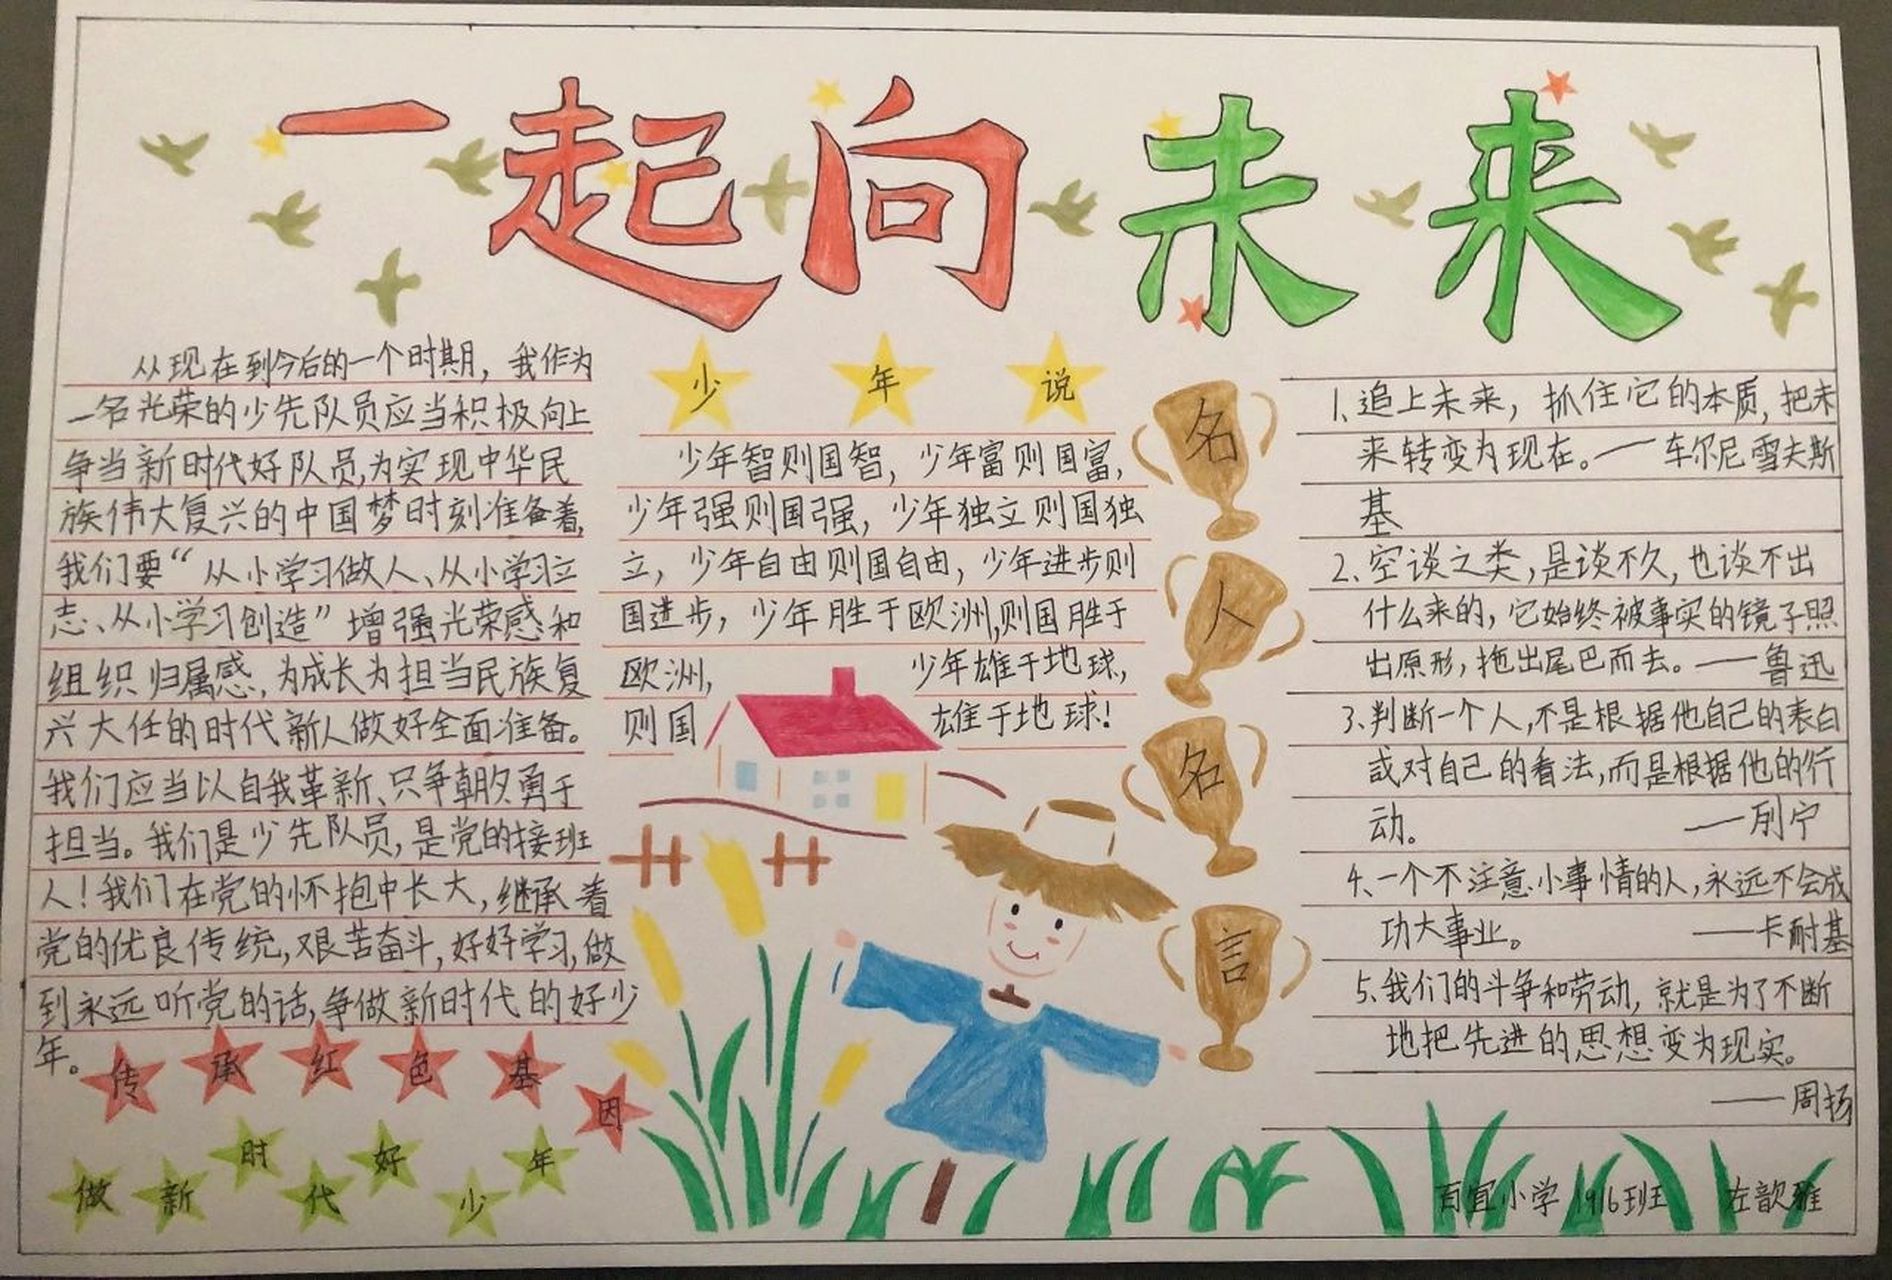 一起向未来
从现在到今后的一个时期，我作为
一名光荣的少先队员应当积极向上
争当新时代好队员，为实现中华民
族伟大复兴的中国梦时刻准备着，
我们要“从小学习做人、从小学习立
志、从小学习创造”增强光荣感和
组织归属感，为成长为担当民族复
兴大任的时代新人做好全面准备。
我们应当以自我革新、只争朝夕、勇于
担当。我们是少先队员，是党的接班
人！我们在党的怀抱中长大，继承着
党的优良传统，艰苦奋斗，好好学习，做
到永远听党的话，争做新时代的好少
年。
传承红色基因
做新时代好少年
少年说
少年智则国智，少年富则国富，
少年强则国强，少年独立则国独
立，少年自由则国自由，少年进步则
国进步，少年胜于欧洲，则国胜于
欧洲，少年雄于地球，
则国雄于地球！
名人名言
1、追上未来，抓住它的本质，把未
来转变为现在。——车尔尼雪夫斯
基
2、空谈之类，是谈不久，也谈不出
什么来的，它始终被事实的镜子照
出原形，拖出尾巴而去。——鲁迅
3、判断一个人，不是根据他自己的表白
或对自己的看法，而是根据他的行
动。——列宁
4、一个不注意小事情的人，永远不会成
功大事业。——卡耐基
5、我们的斗争和劳动，就是为了不断
地把先进的思想变为现实。
——周扬
百宜小学 1916班 左歆雅